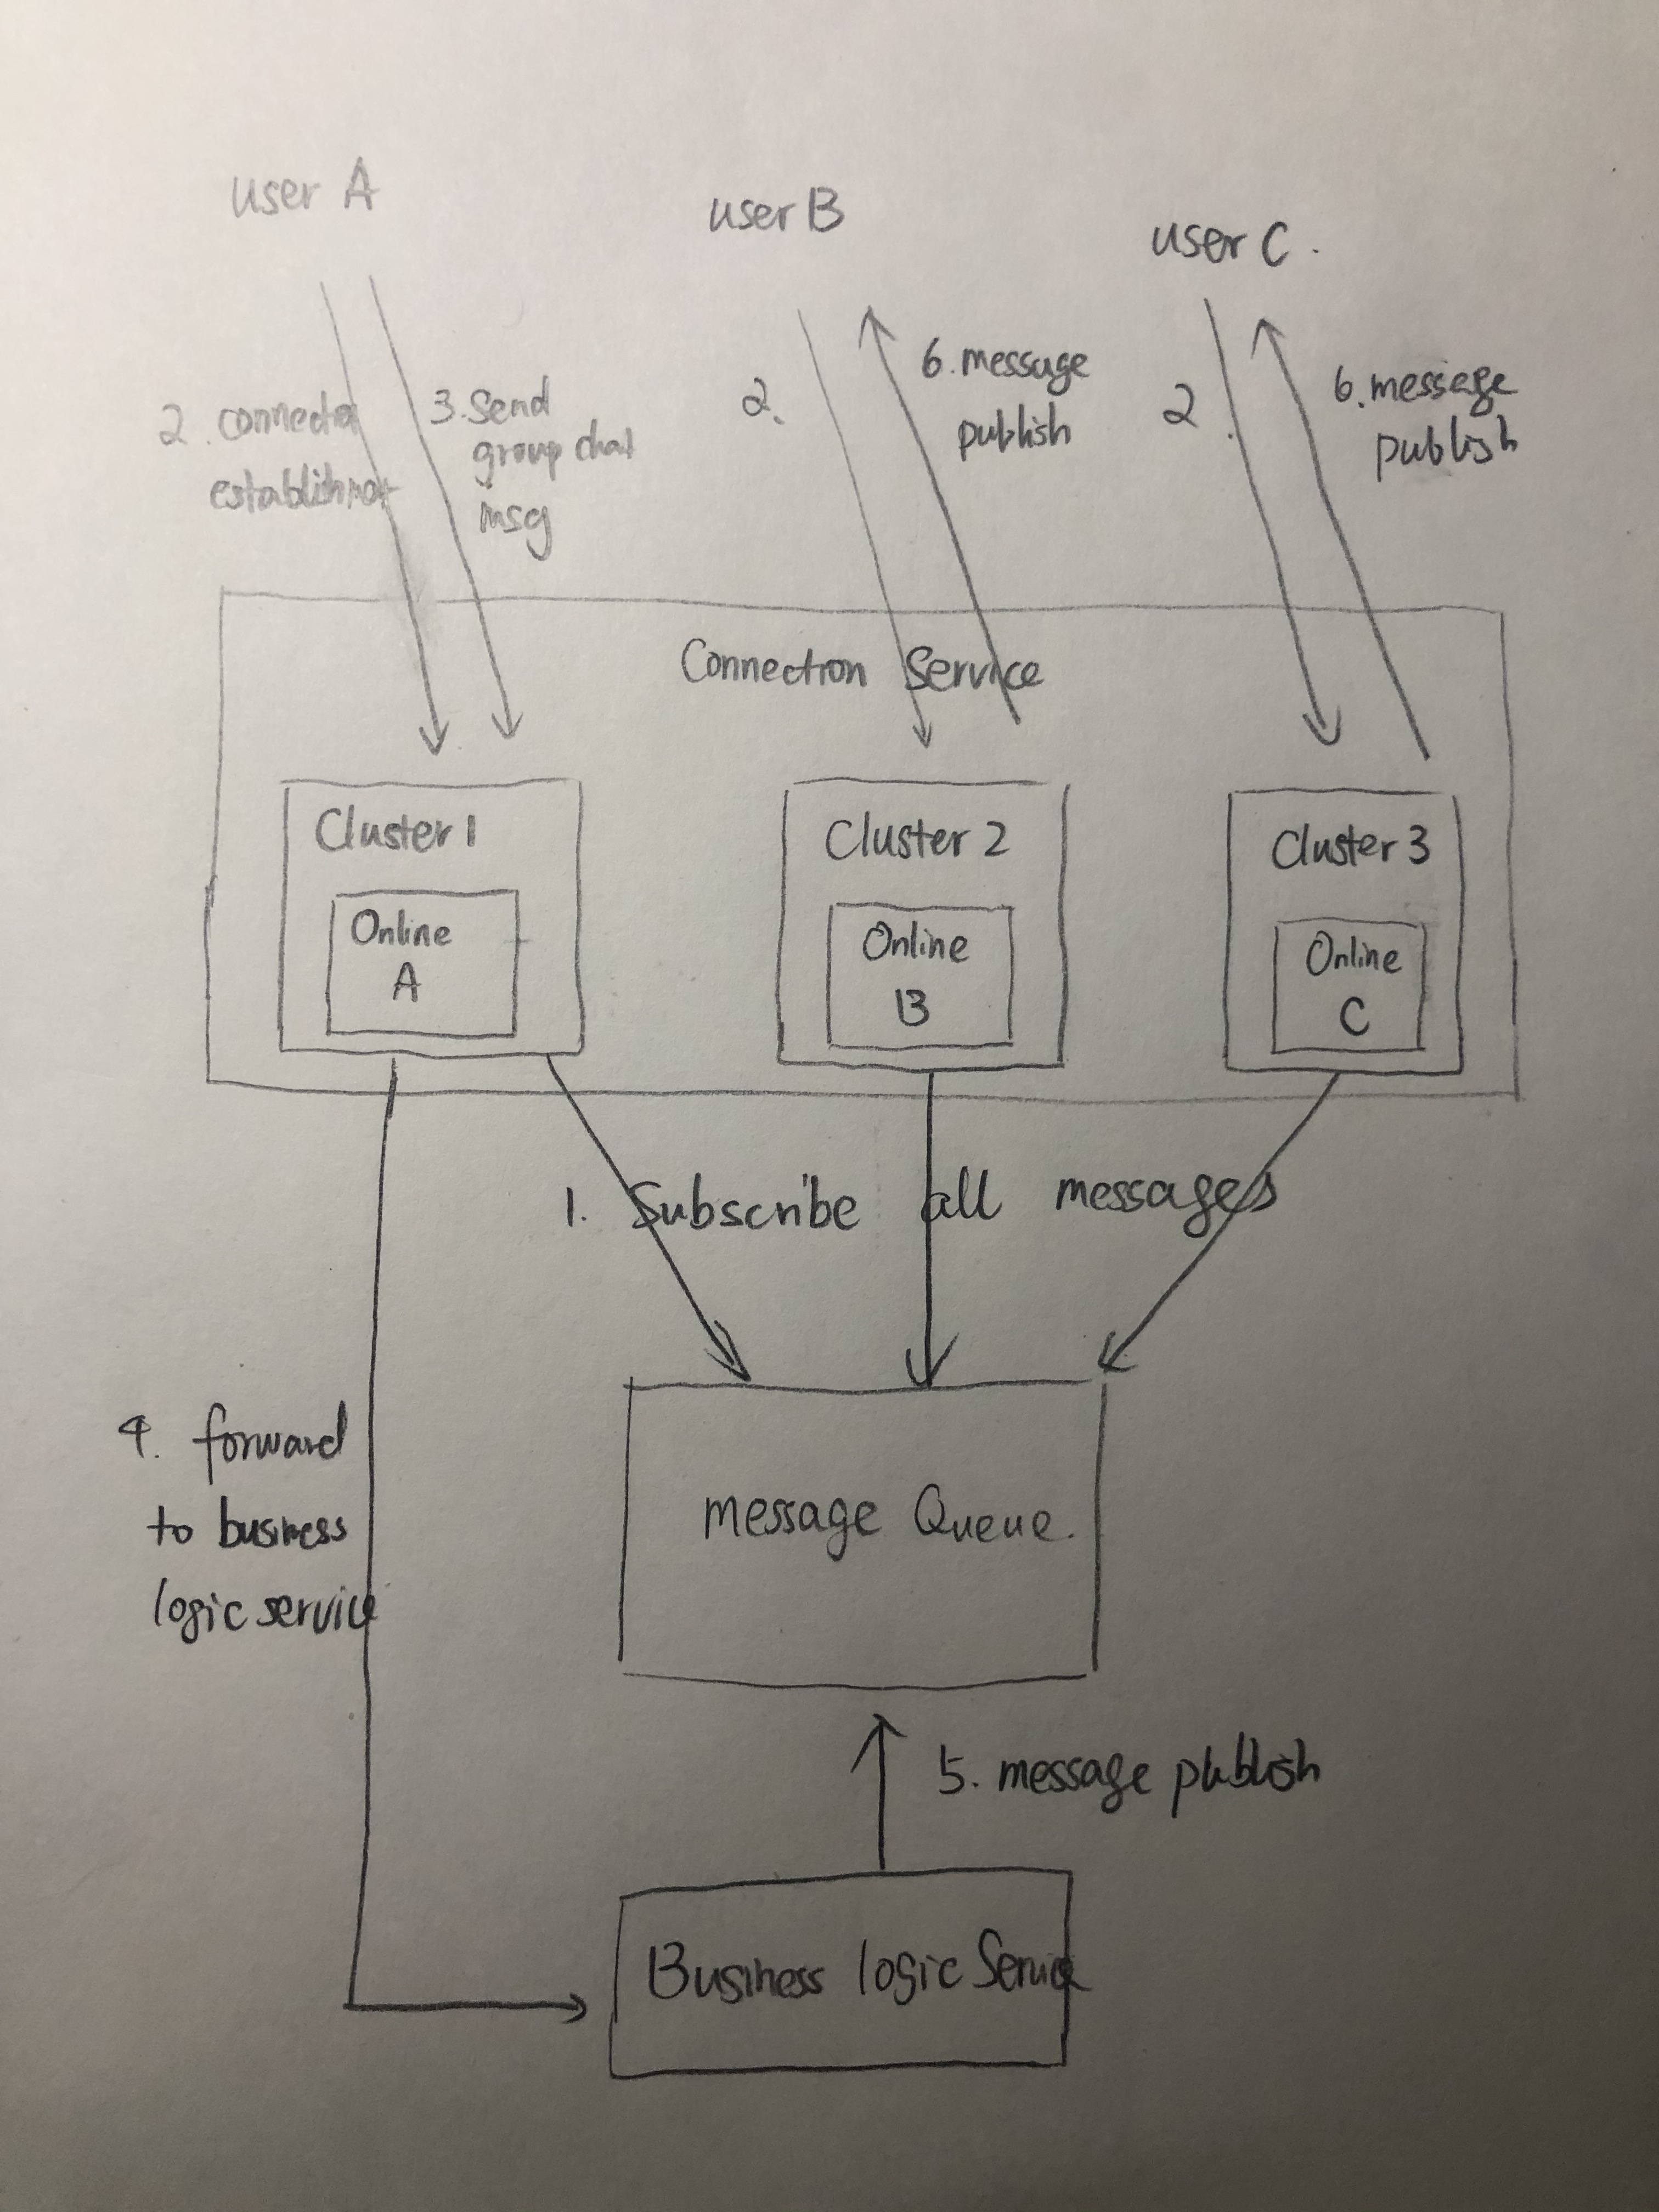 user A
user B
user C.
2. connection
establishment
3. Send
group chat
msg
2.
6. message
publish
2.
6. message
publish
Connection Service
Cluster 1
Online
A
Cluster 2
Online
B
Cluster 3
Online
C
1. Subscribe all messages
4. forward
to business
logic service
message Queue.
5. message publish
Business logic Service